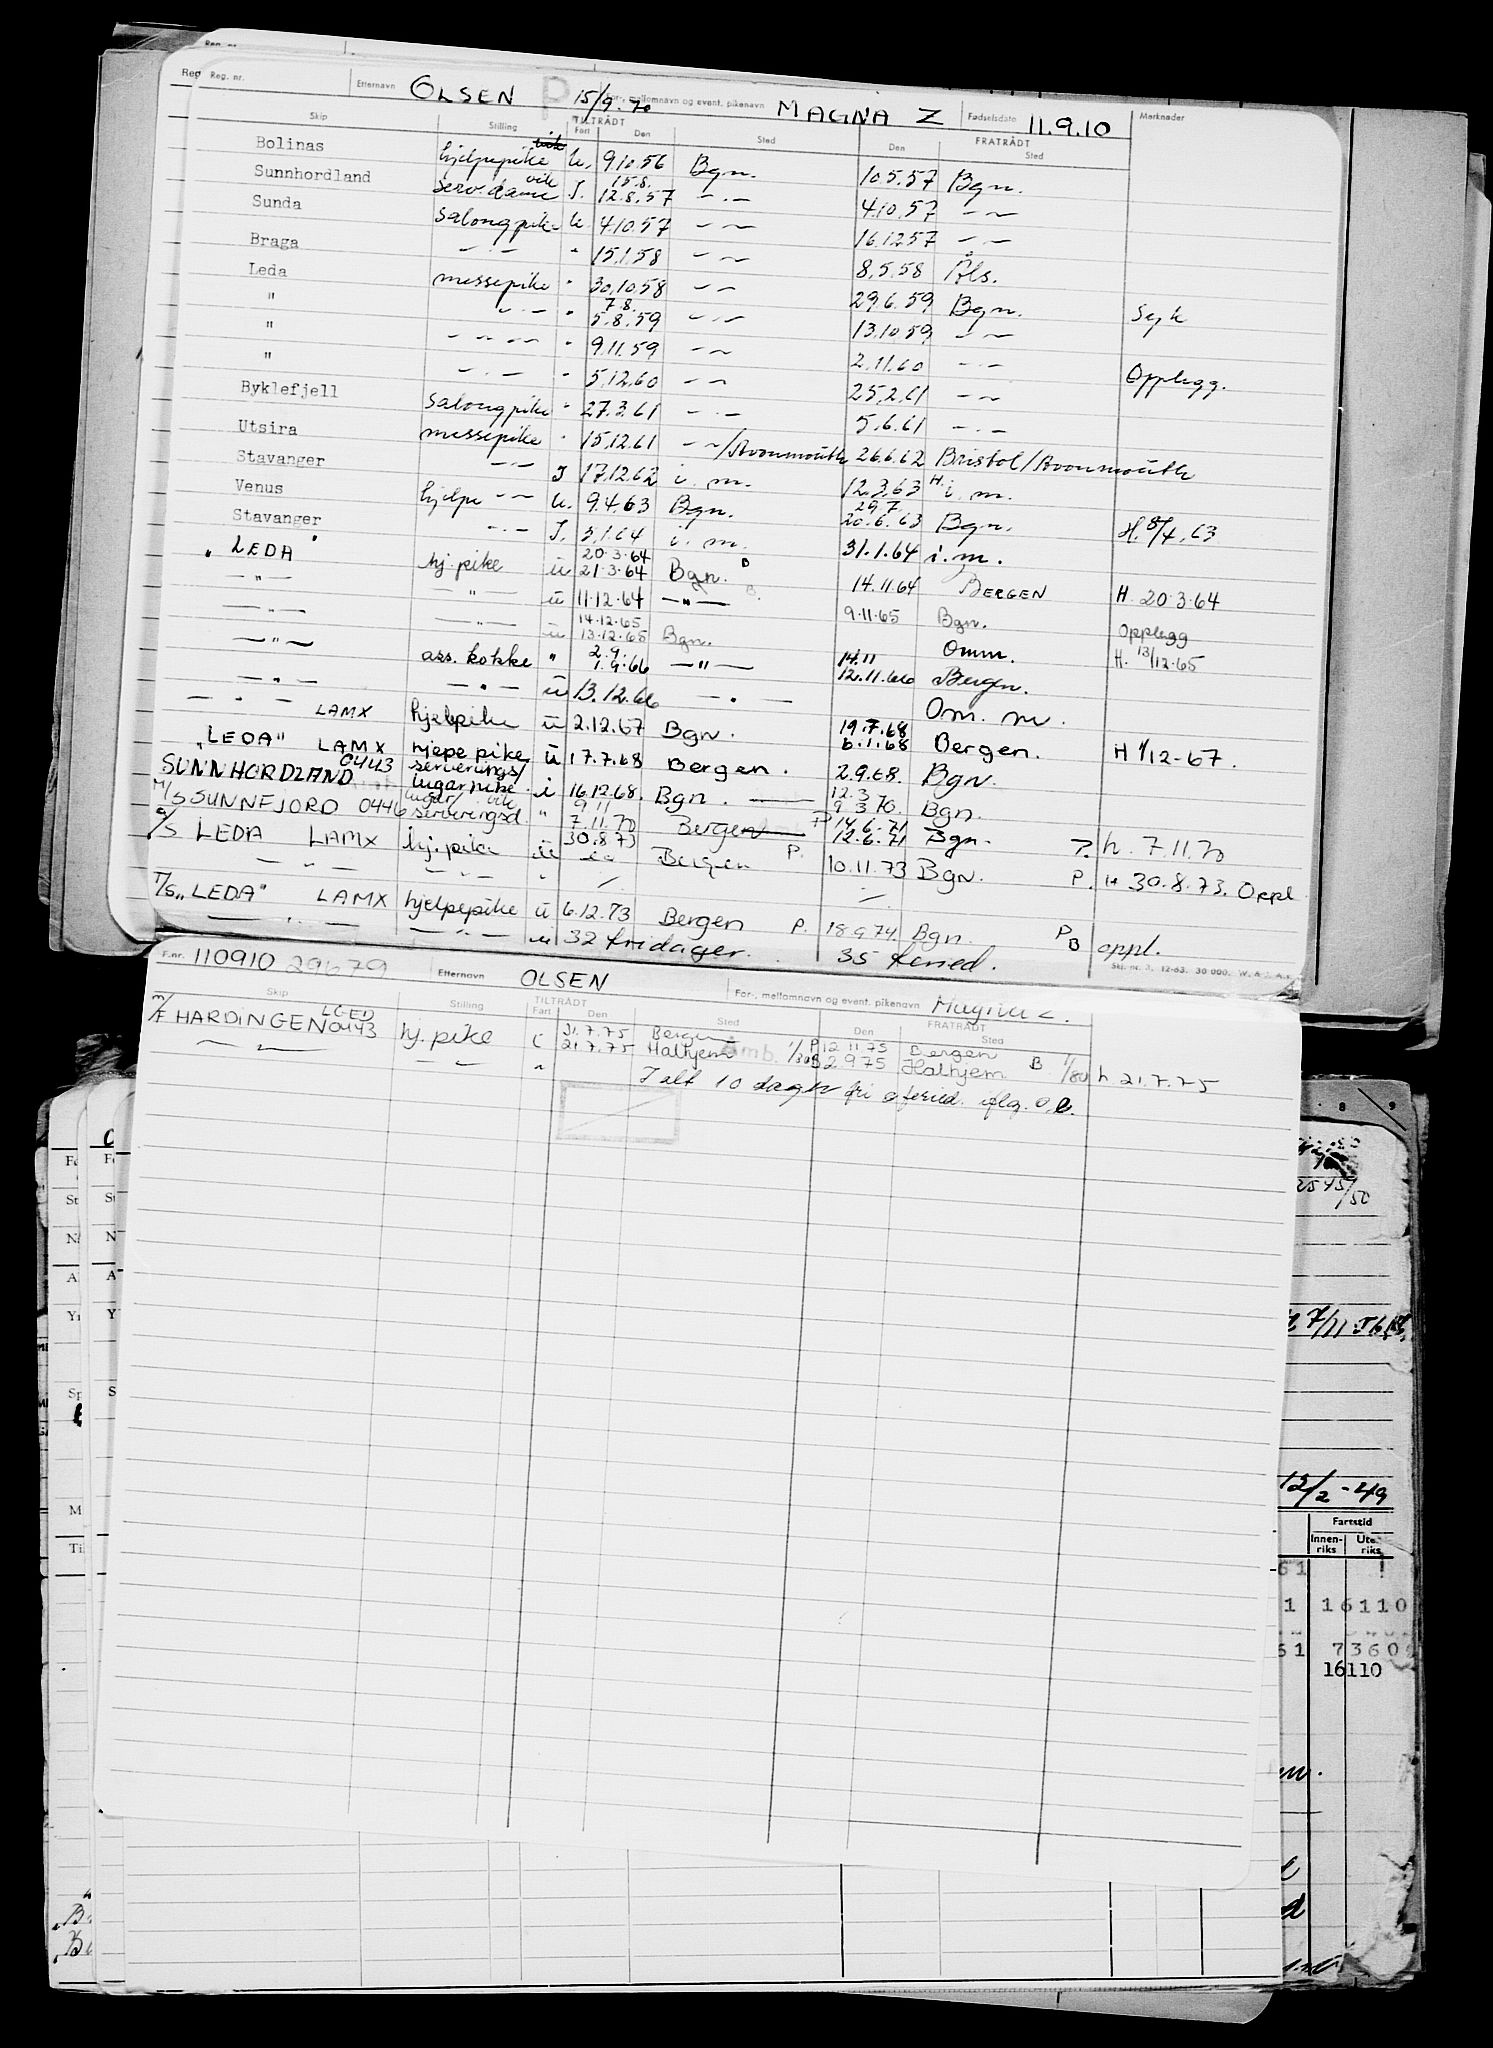 Reg. nr.
Reg Reg. nr. Etternavn OLSEN P 15/9.70 For-, mellomnavn og event. pikenavn MAGNA Z Fødselsdato 11.9.10 Merknader
Skip Stilling Fart TILTRÅDT Den Sted Den FRATRÅDT Sted
Bolinas hjelpepike vik U. 9.10.56 Bgn. 10.5.57 Bgn.
Sunnhordland serv.dame vik I. 15.8. 12.8.57 — · — 4.10.57 — —
Sunda salongpike U. 4.10.57 — — 16.12.57 — —
Braga — · — " 15.1.58 — — 8.5.58 Åls.
Leda messepike " 30.10.58 — — 29.6.59 Bgn. Syk
" — · — " 7.8. 5.8.59 — · — 13.10.59 — —
" — — — — " 9.11.59 — — 2.11.60 — · — Opplegg.
" — · — " 5.12.60 — — 25.2.61 — —
Byklefjell salongpike " 27.3.61 — · — 5.6.61 — · —
Utsira messepike " 15.12.61 — —/Avonmouth 26.6.62 Bristol/Avonmouth
Stavanger — — I 17.12.62 i. m. 12.3.63 H. i. m.
Venus hjelpe — — U. 9.4.63 Bgn. 29.7. 20.6.63 Bgn. H. 8/4.63
Stavanger — · — I. 3.1.64 i. m. 31.1.64 i. m.
" LEDA " hj. pike ü 20.3.64 21.3.64 Bgn. B 14.11.64 BERGEN H. 20.3.64
— " — — " — ü 11.12.64 — " — B. 9.11.65 Bgn. Opplegg
— " — — " — ü 14.12.65 13.12.65 Bgn. Omm. H. 13/12.65
— " — ass. kokke " 2.9. 1.9.66 — " — 14.11 12.11.66 Bergen.
— " — — " — ü 13.12.66 — " — Om. m.
— " — LAMX hjelpepike ü 2.12.67 Bgn. 19.7.68 6.1.68 Bergen. H 1/12-67.
"LEDA" LAMX hjepe pike ü 17.7.68 Bergen. 2.9.68. Bgn.
SUNNHORDLAND 0443 serverings/ lugarpike i 16.12.68. Bgn. 12.3 9.3.70. Bgn.
M/S SUNNFJORD 0446 lugar/ vik serveringsd. " 9 11 7.11.70 Bergen P 14.6.71 12.6.71 Bgn. P. h. 7.11.70
S/S LEDA LAMX hj. pike ü 30.8.73 Bergen P. 10.11.73 Bgn. P. H 30.8.73. Oppl
— " — — " —
T/S "LEDA" LAMX hjelpepike ü 6.12.73 Bergen P. 18.9.74. Bgn. P B oppl.
— " — — " — ü 32 fridager. 35 feried.
Skj. nr. 3. 12-63. 30 000. W. & J. A.s
F.nr. 110910 29679 Etternavn OLSEN For-, mellomnavn og event. pikenavn Magna Z.
Skip Stilling Fart TILTRÅDT Den Sted Den FRATRÅDT Sted
M/F HARDINGEN LGED 0443 hj. pike i 31.7.75 Bergen P 12 11.75 Bergen
— " — 21.7.75 Halhjem 2.9.75 Halhjem B 1/80 h 21.7.75
— " — " I alt 10 dager fri o feried. iflg. O.B.
8 9
2545/50
7/11
12/2 - 49
Fartstid
Innen- riks Uten riks
61
1 16110
61 7360
16110